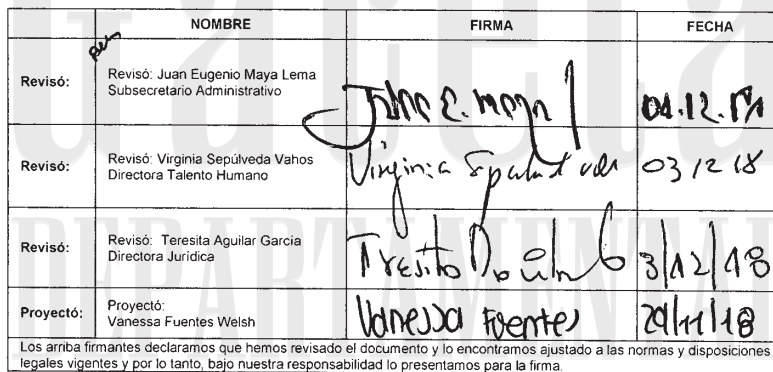 NOMBRE FIRMA FECHA
Revisó: Revisó: Juan Eugenio Maya Lema
Subsecretario Administrativo
Revisó: Revisó: Virginia Sepúlveda Vahos Virginia 03/12/18
Directora Talento Humano
Revisó: Revisó: Teresita Aguilar García 3/12/18
Directora Jurídica
Proyectó: Proyectó: Vanessa Fuentes
Vanessa Fuentes Welsh
Los arriba firmantes declaramos que hemos revisado el documento y lo encontramos ajustado a las normas y disposiciones
legales vigentes y por lo tanto, bajo nuestra responsabilidad lo presentamos para la firma.